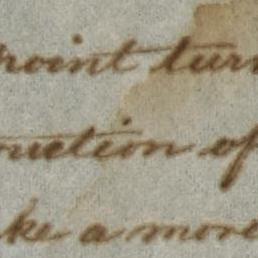 point turn
ruction of
ke a more